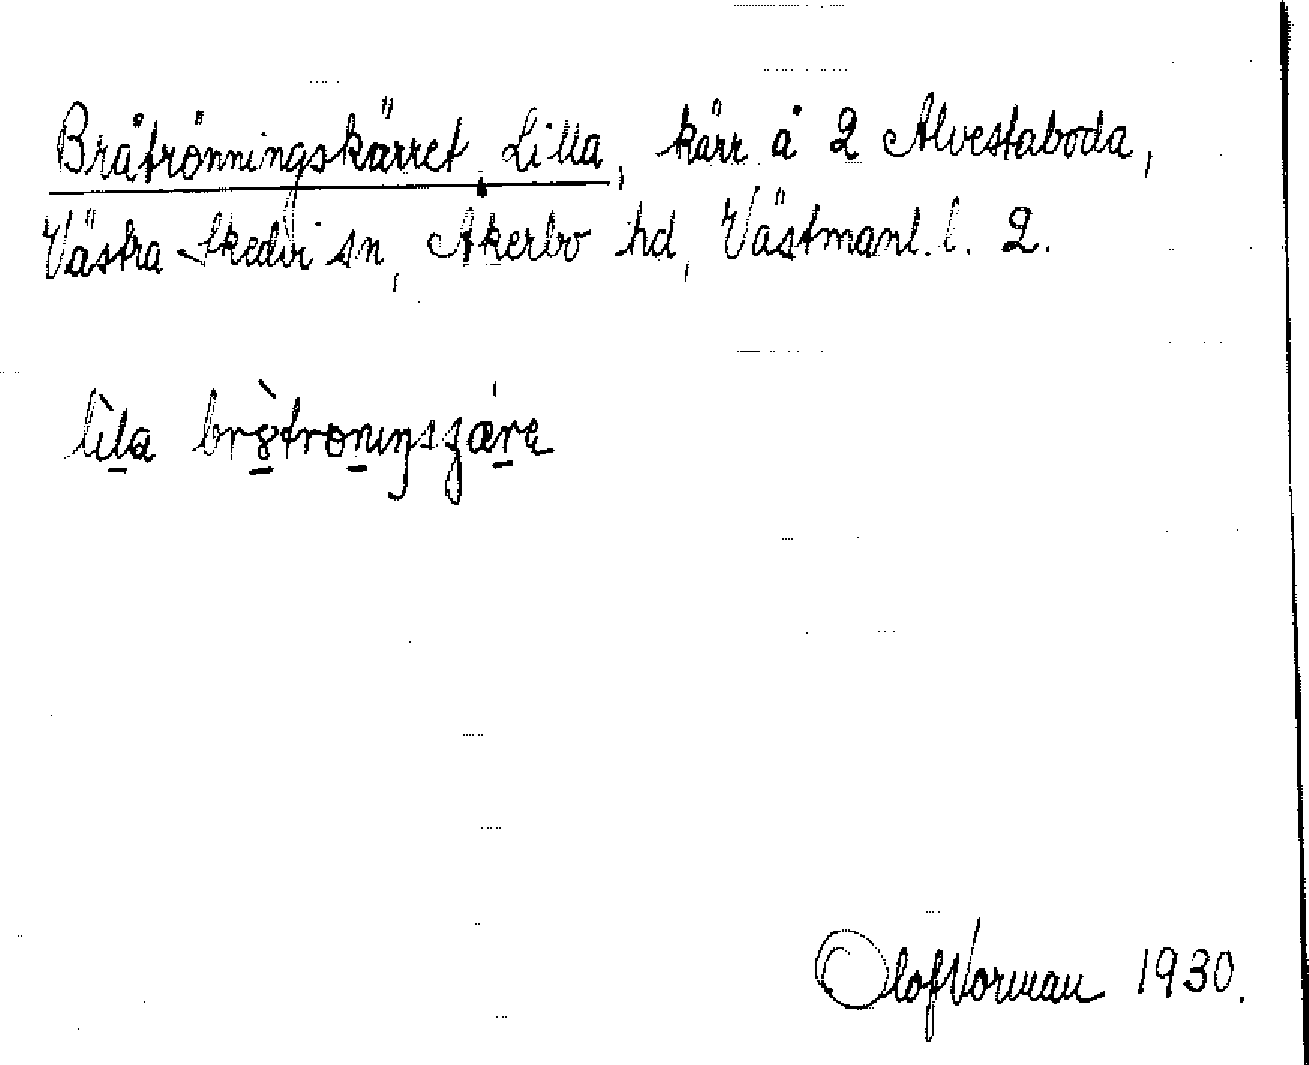 Bråtrönningskärret, Lilla, kärr å 2 Alvestaboda,
Västra Skedvi sn, Åkerbo hd, Västmanl. l. 2.
lìla
Olof Vorman 1930.